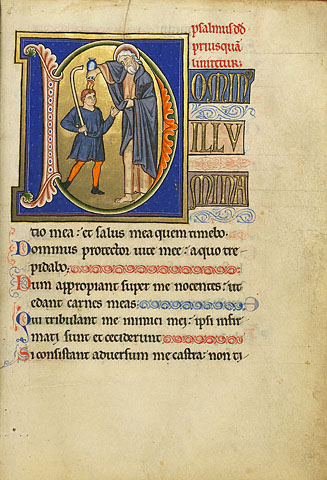 psalmus dd
priusquā
liniretur.
DOMINUS
ILLU
MINA
tio mea: et salus mea quem timebo.
Dominus protector uite mee: a quo tre
pidabo.
Dum appropiant super me nocentes: ut
edant carnes meas.
Qui tribulant me inimici mei: ipsi infir
mati sunt et ceciderunt
Si consistant aduersum me castra: non ti